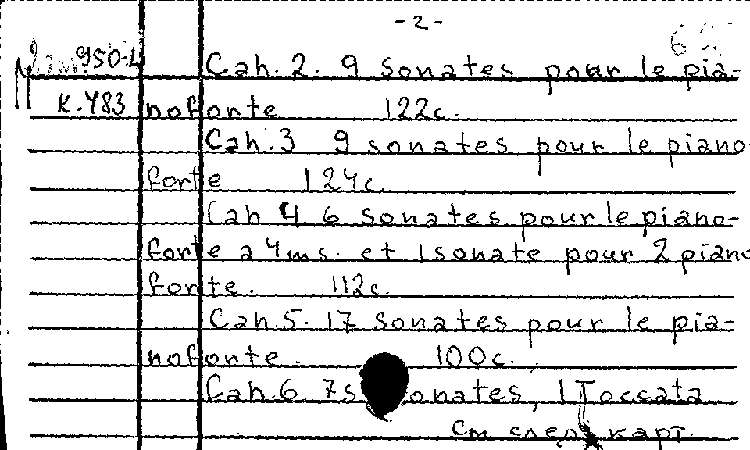 -2-
950-4 Cah. 2. 9 Sonates pour le pia-
K.483 noforte 122c.
Cah. 3 9 sonates pour le piano
forte 124c.
Cah 4 6 Sonates pour le piano-
forte a 4ms. et 1 sonate pour 2 piano
forte. 112c.
Cah. 5. 17 Sonates pour le pia-
noforte. 100c.
Cah. 6 7 Sonates, 1 Toccata
см след карт.